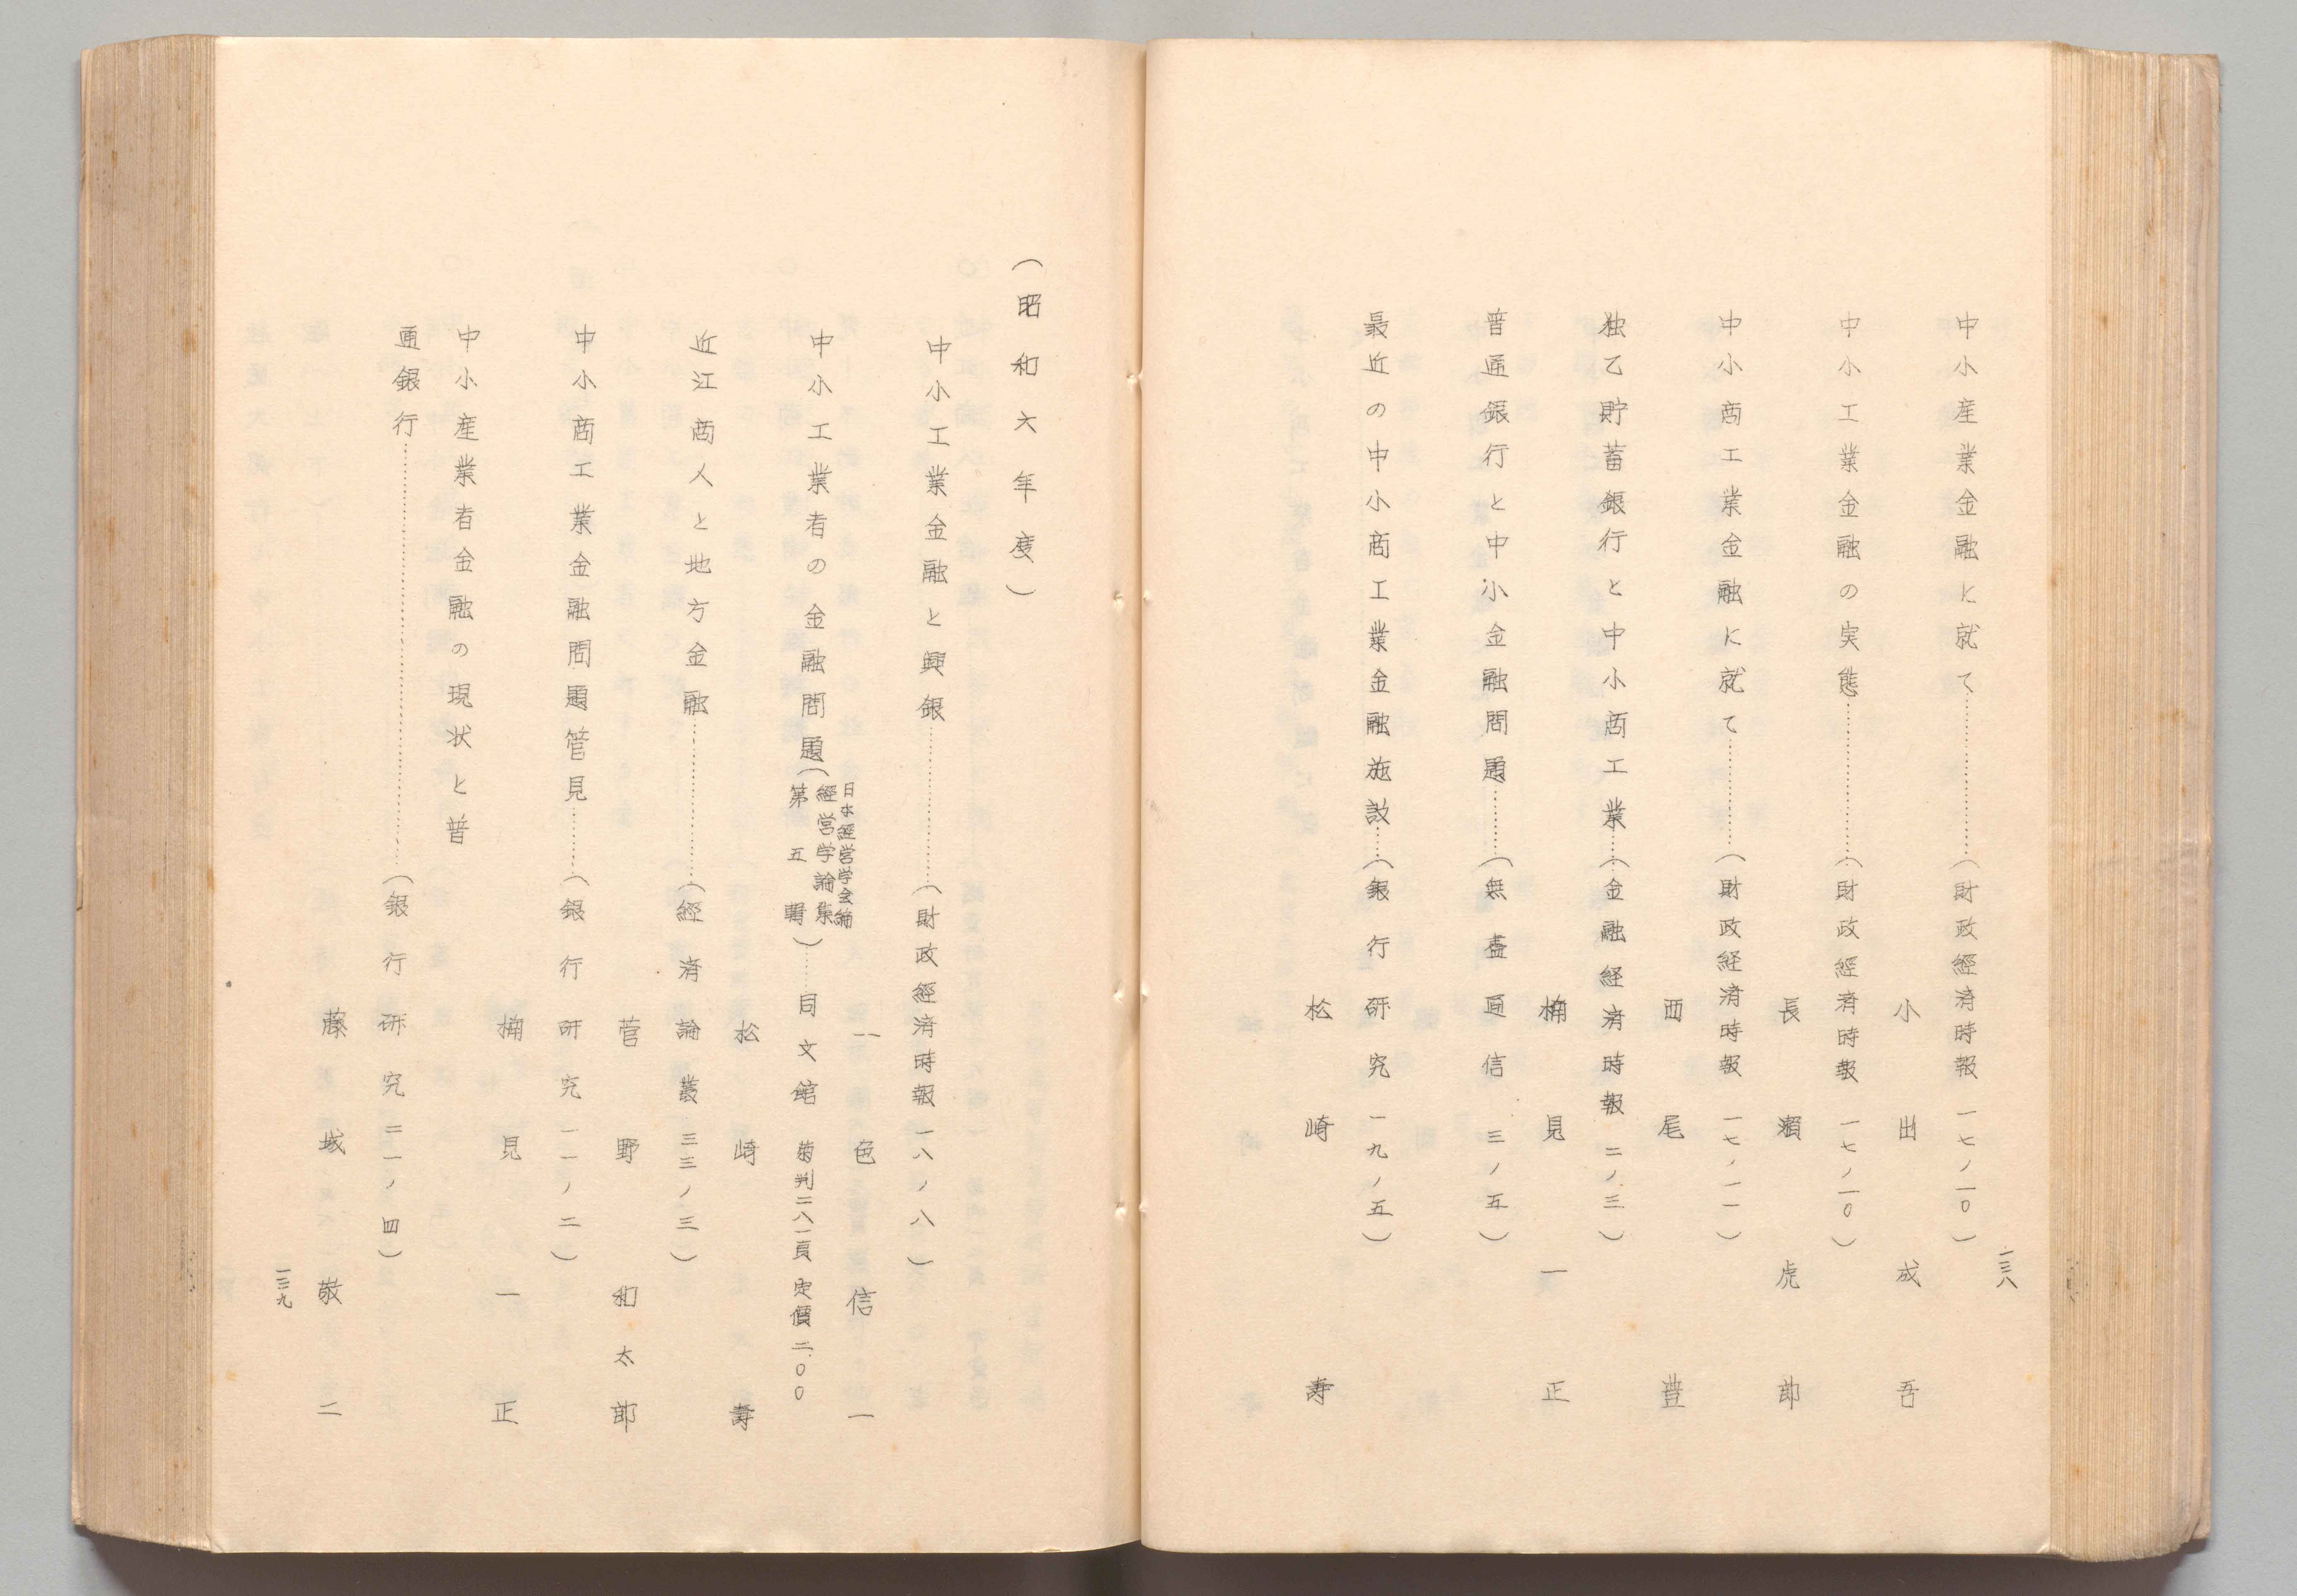 一三八
中小産業金融に就て…………(財政經済時報 一七ノ一〇)
小出成吾
中小工業金融の実態…………(財政經済時報 一七ノ一〇)
長瀬虎郎
中小商工業金融に就て…………(財政経済時報 一七ノ一一)
西尾豊
独乙貯蓄銀行と中小商工業……(金融経済時報 二ノ三)
楠見一正
普通銀行と中小金融問題…………(無盡通信 三ノ五)
最近の中小商工業金融施設……(銀行研究 一九ノ五)
松崎寿
(昭和六年度)
中小工業金融と興銀…………(財政經済時報 一八ノ八)
一色信一
中小工業者の金融問題(日本經営学会編
經営学論集
第五輯)……同文館 菊判二八一頁 定價二.〇〇
松崎壽
近江商人と地方金融…………(經済論叢 三三ノ三)
菅野和太郎
中小商工業金融問題管見………(銀行研究 二一ノ二)
楠見一正
中小産業者金融の現状と普
通銀行…………(銀行研究 二一ノ四)
藤城敬二
一三九